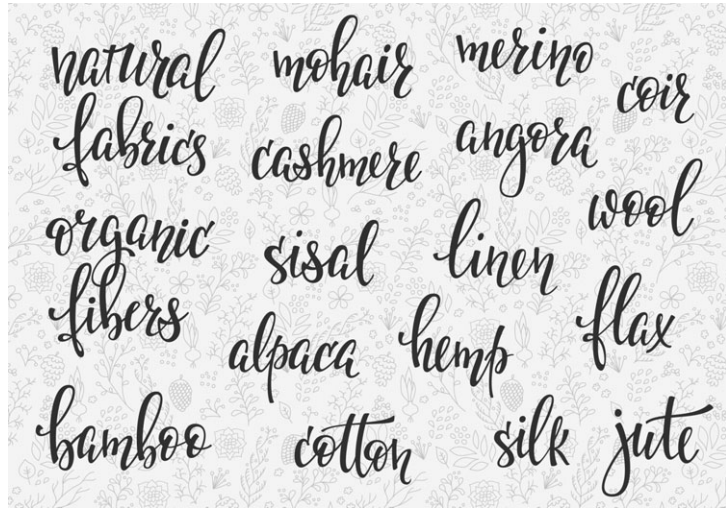 natural
fabrics
mohair
merino
coir
cashmere
angora
organic
fibers
sisal
linen
wool
alpaca
hemp
flax
bamboo
cotton
silk
jute